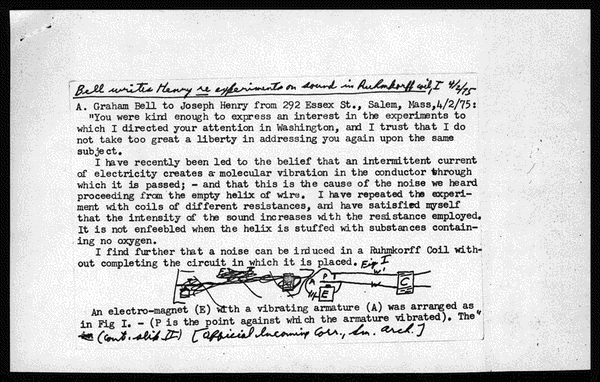 Bell writes Henry re experiments on sound in Ruhmkorff coil, I 4/2/75
A. Graham Bell to Joseph Henry from 292 Essex St., Salem, Mass,4/2/75:
"You were kind enough to express an interest in the experiments to
which I directed your attention in Washington, and I trust that I do
not take too great a liberty in addressing you again upon the same
subject.
I have recently been led to the belief that an intermittent current
of electricity creates a molecular vibration in the conductor through
which it is passed; - and that this is the cause of the noise we heard
proceeding from the empty helix of wire. I have repeated the experi-
ment with coils of different resistances, and have satisfied myself
that the intensity of the sound increases with the resistance employed.
It is not enfeebled when the helix is stuffed with substances contain-
ing no oxygen.
I find further that a noise can be induced in a Ruhmkorff Coil with-
out completing the circuit in which it is placed. Fig I
P
A
E
W'
W
C
An electro-magnet (E) with a vibrating armature (A) was arranged as
in Fig I. - (P is the point against which the armature vibrated). The"
(Cont. slip II) [Official Incoming Corr., Sm. Arch.]